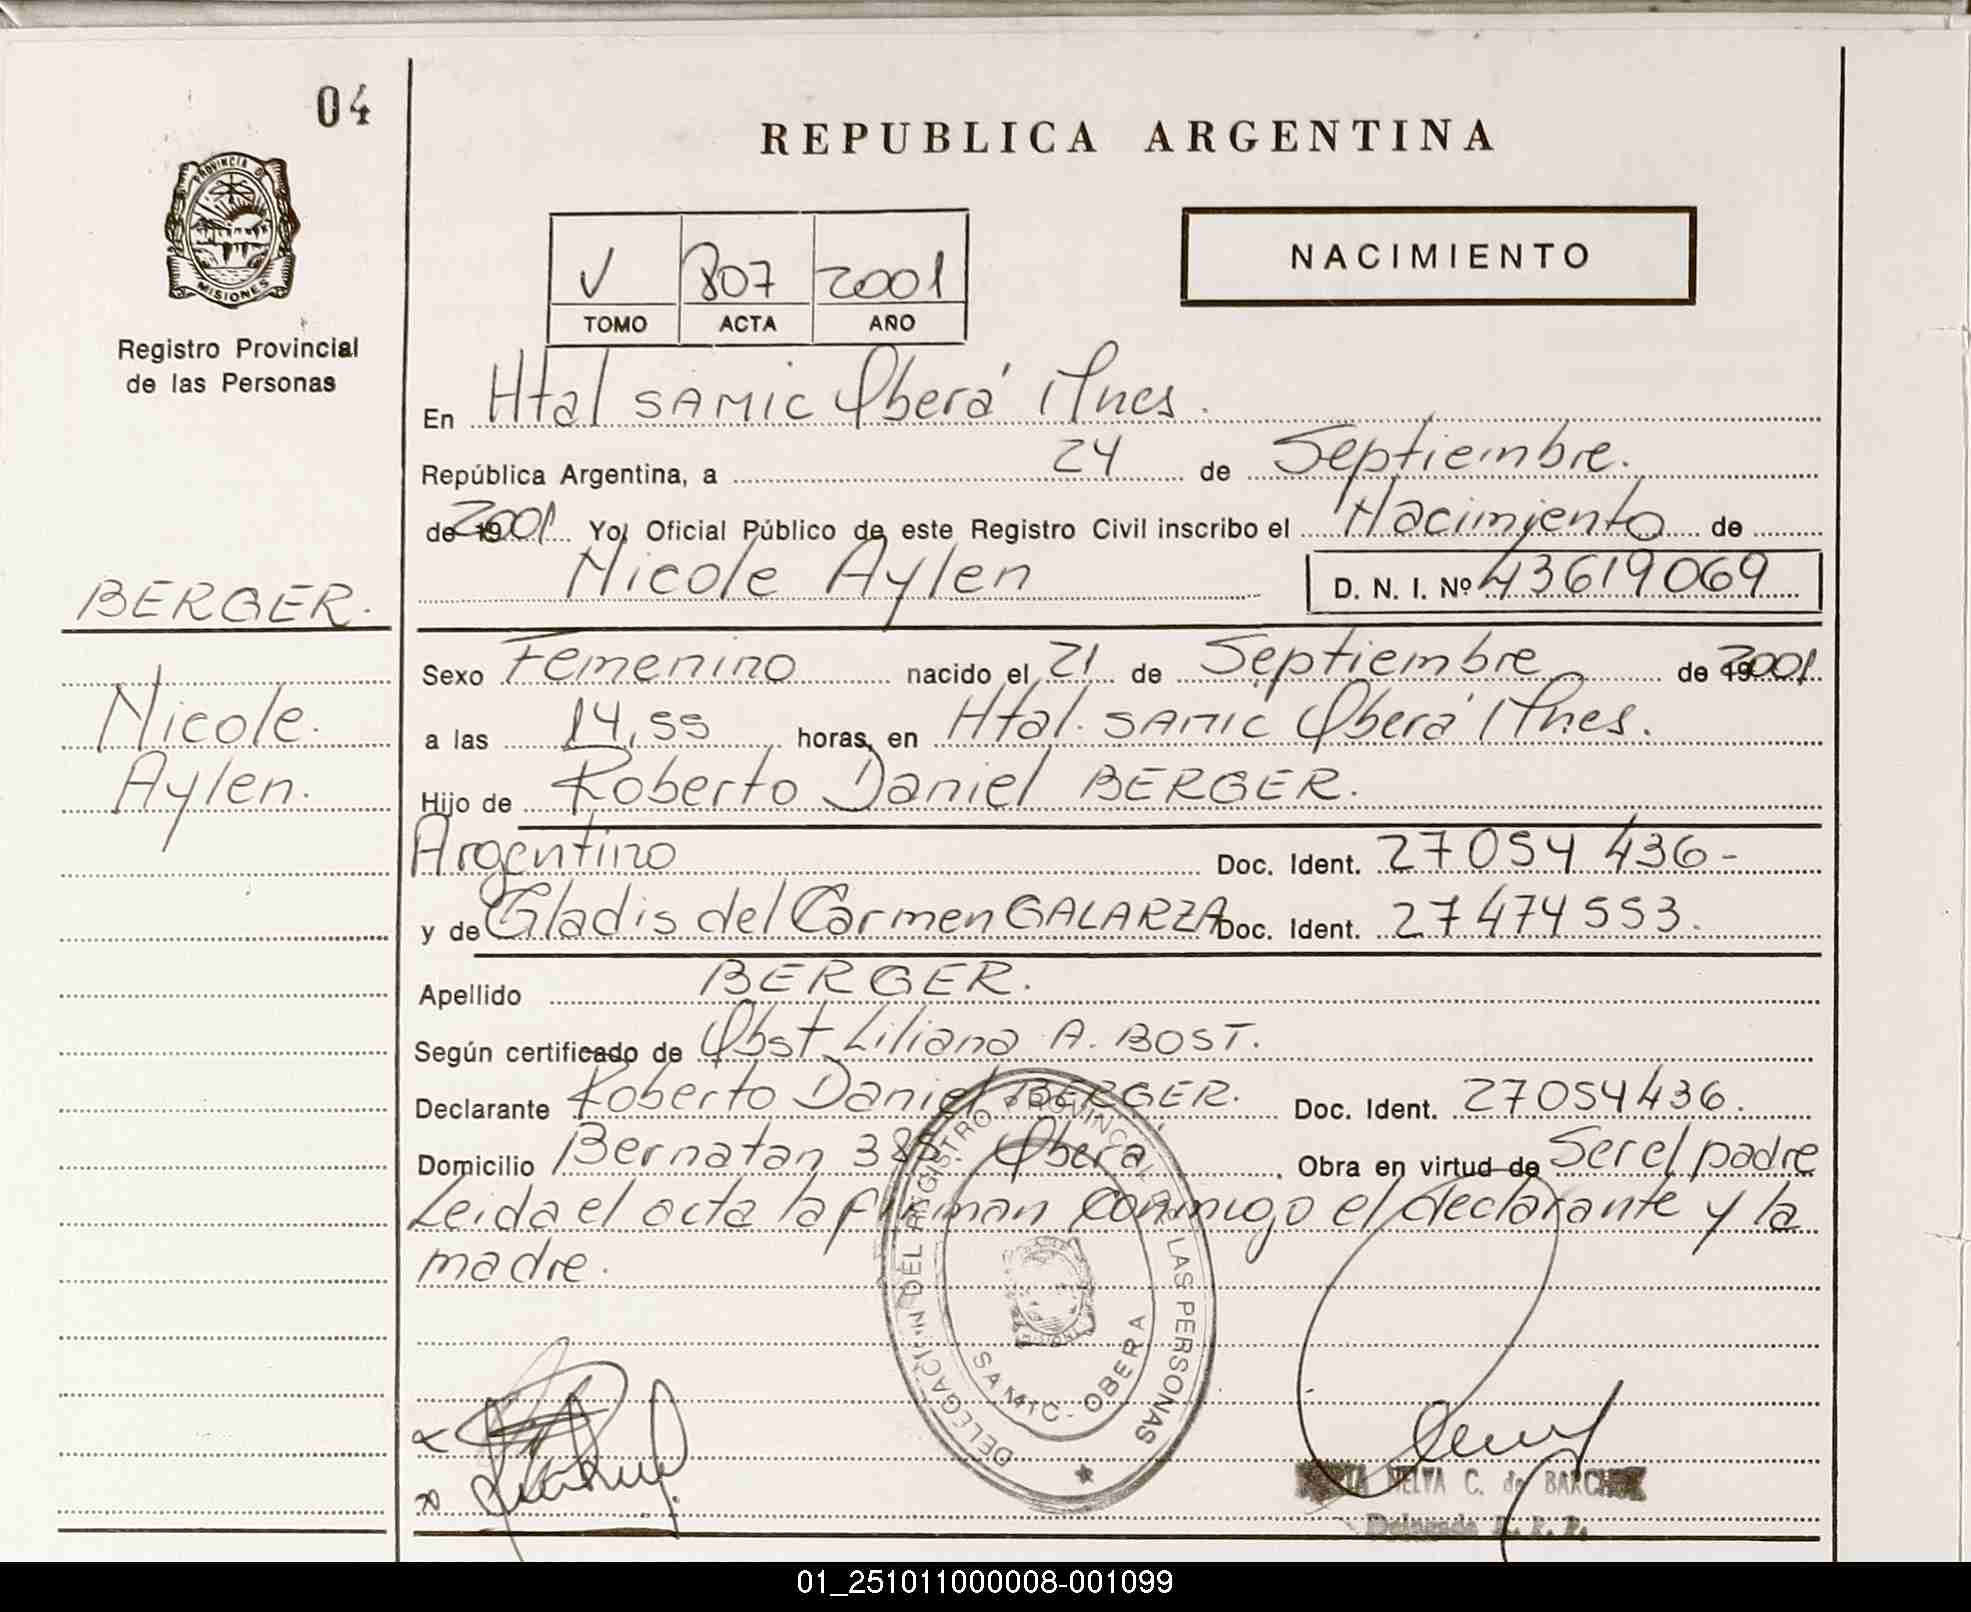 04
REPUBLICA ARGENTINA
PROVINCIA DE
MISIONES
Registro Provincial
de las Personas
V 807 2001
TOMO ACTA AÑO
NACIMIENTO
En Htal SAMIC Oberá Mnes.
República Argentina, a 24 de Septiembre.
de 19 2001 Yo, Oficial Público de este Registro Civil inscribo el Nacimiento de
Nicole Aylen D. N. I. Nº 43619069
BERGER.
Nicole.
Aylen.
Sexo Femenino nacido el 21 de Septiembre de 19 2001.
a las 14,55 horas, en Htal. SAMIC Oberá Mnes.
Hijo de Roberto Daniel BERGER.
Argentino Doc. Ident. 27054436-
y de Gladis del Carmen GALARZA Doc. Ident. 27474553.
Apellido BERGER.
Según certificado de Obst. Liliana A. BOST.
Declarante Roberto Daniel BERGER. Doc. Ident. 27054436.
Domicilio Bernatan 385. Oberá Obra en virtud de Ser el padre
Leida el acta la firman conmigo el declarante y la
madre.
DELEGACION DEL REGISTRO PROVINCIAL DE LAS PERSONAS
SAMIC - OBERA
NELVA C. de
Delegada R. P. P.
01_251011000008-001099